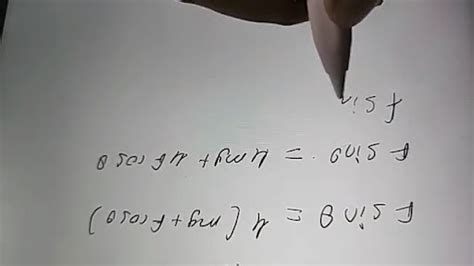 F sin θ = μ (mg + F cos θ)
F sin θ = μmg + μF cos θ
F sin